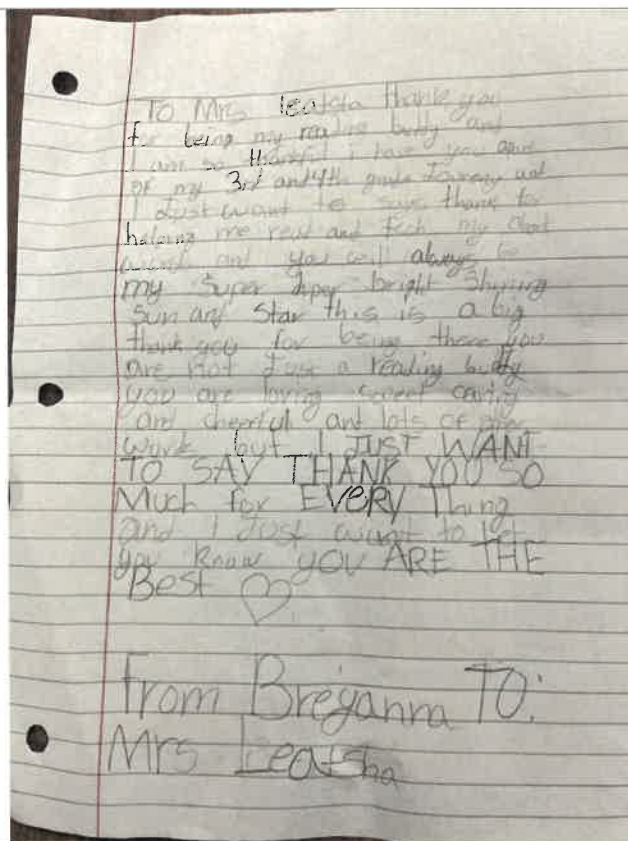 To Mrs leatsha thank you
for being my reading buddy and
I am so thankful i have you apart
of my 3rd and 4th grade Journey and
I Just want to say thank for
helping me read and my
words and you will always be
my Super duper bright Shining
Sun and Star this is a big
thank you for being there you
are not Just a reading buddy
you are loving sweet caring
and cheerful and lots of other
words but I JUST WANT
TO SAY THANK YOU SO
Much for EVERY Thing
and I Just want to let
you know you ARE THE
Best ♡
From Breyanna TO:
Mrs Leatsha